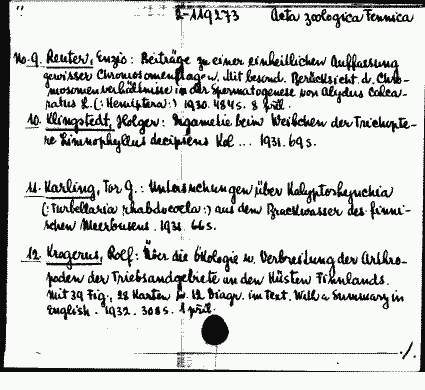 2-119273 Acta zoologica Fennica
No. 9. Reuter, Enzio: Beiträge zu einer einheitlichen Auffassung
gewisser Chromosomenfragen. Mit besond. Berücksicht. d. Chro-
mosomenverhältnisse in der Spermatogenese von Alydus calca-
ratus L. (: Hemiptera :) 1930. 484 s. 8 pl.
10. Klingstedt, Holger: Digametie beim Weibchen der Trichopte-
re Limnophilus decipiens Kol ... 1931. 69 s.
11. Karling, Tor G.: Untersuchungen über Kalyptorhynchia
(: Turbellaria rhabdocoela :) aus dem Brackwasser des finni-
schen Meerbusens. 1931. 66 s.
12. Krogerus, Rolf: Über die Ökologie u. Verbreitung der Arthro-
poden der Triebsandgebiete an den Küsten Finnlands.
Mit 39 Fig., 28 Karten u. 12 Diagr. im Text. With a Summary in
English. 1932. 308 s. 1 pl.
./.